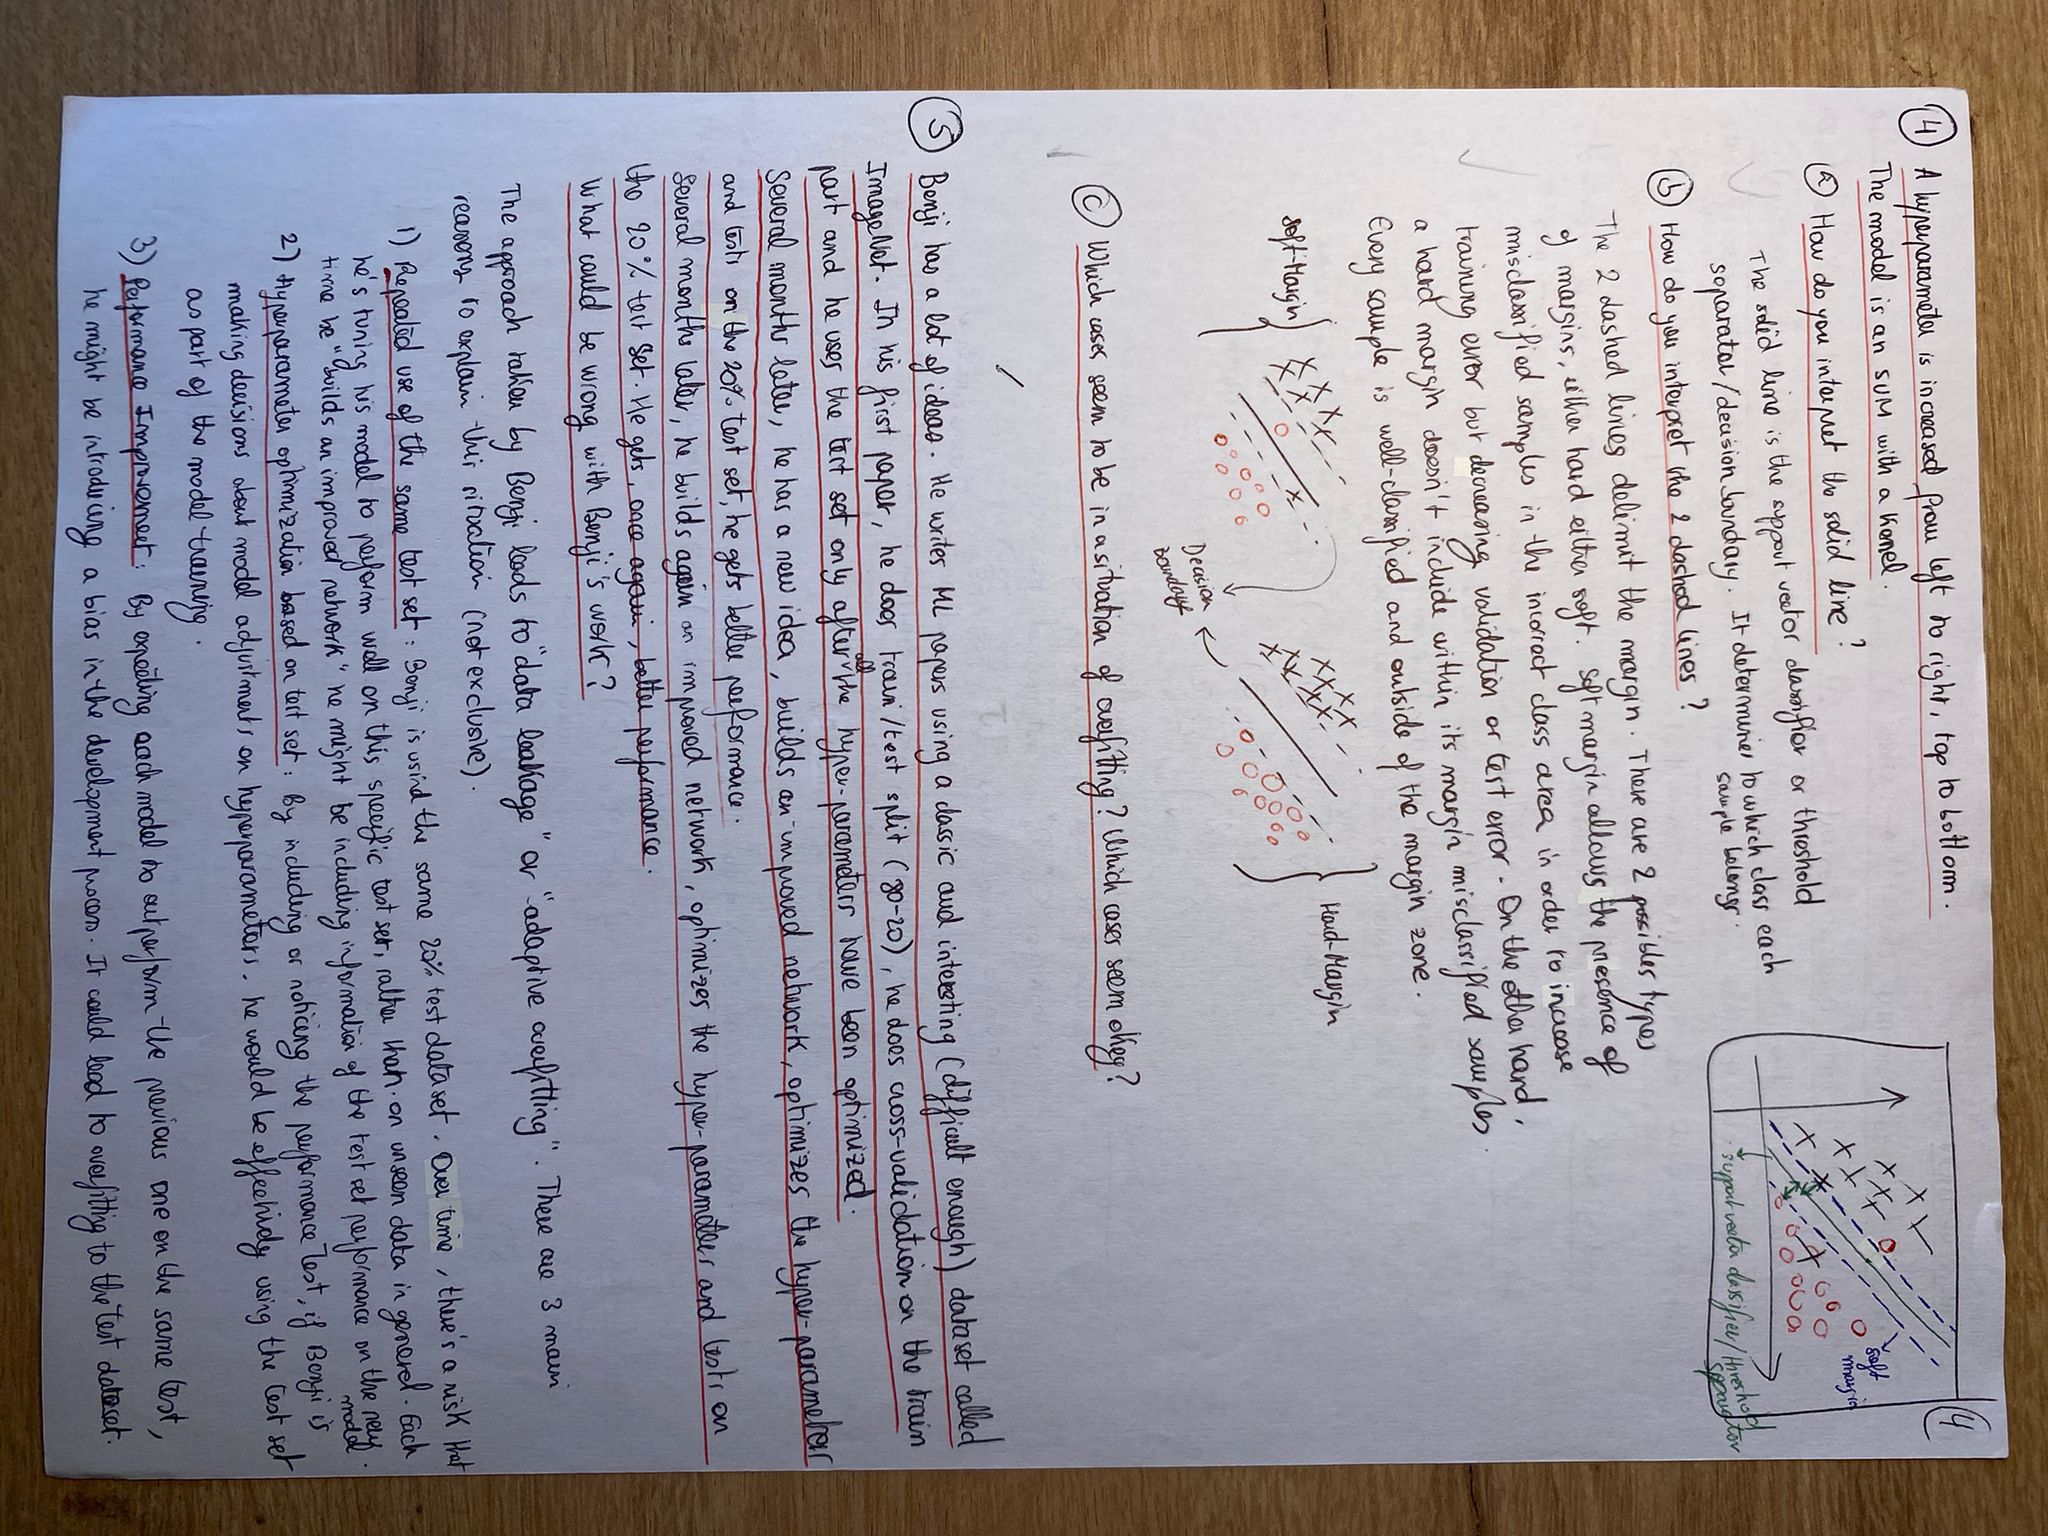 4
4 A hyperparameter is increased from left to right, top to bottom.
The model is an SVM with a Kernel.
soft
margin
support vector classifier / threshold
separator
a How do you interpret the solid line?
The solid line is the support vector classifier or threshold
separator/decision boundary. It determines to which class each
sample belongs.
b How do you interpret the 2 dashed lines?
The 2 dashed lines delimit the margin. There are 2 possibles types
of margins, either hard either soft. Soft margin allows the presence of
misclassified samples in the incorrect class area in order to increase
training error but decreasing validation or test error. On the other hand,
a hard margin doesn't include within its margin misclassified samples.
Every sample is well-classified and outside of the margin zone.
Soft-Margin
Hard-Margin
Decision
Boundary
c Which cases seem to be in a situation of overfitting? Which cases seem okey?
5 Benji has a lot of ideas. He writes ML papers using a classic and interesting (difficult enough) dataset called
ImageNet. In his first paper, he does train/test split (80-20), he does cross-validation on the train
part and he uses the test set only after all the hyper-parameters have been optimized.
Several months later, he has a new idea, builds an improved network, optimizes the hyper-parameters
and tests on the 20% test set, he gets better performance.
Several months later, he builds again an improved network, optimizes the hyper-parameters and tests on
the 20% test set. He gets, once again, better performance.
What could be wrong with Benji's work?
The approach taken by Benji leads to "data leakage" or "adaptive overfitting". There are 3 main
reasons to explain this situation (not exclusive).
1) Repeated use of the same test set: Benji is usind the same 20% test dataset. Over time, there's a risk that
he's tuning his model to perform well on this specific test set, rather than on unseen data in general. Each
time he "builds an improved network" he might be including information of the test set performance on the new
model.
2) Hyperparameter optimization based on test set: By including or noticing the performance test, if Benji is
making decisions about model adjustments on hyperparameters, he would be effectively using the test set
as part of the model training.
3) Performance Improvement: By expecting each model to outperform the previous one on the same test,
he might be introducing a bias in the development process. It could lead to overfitting to the test dataset.